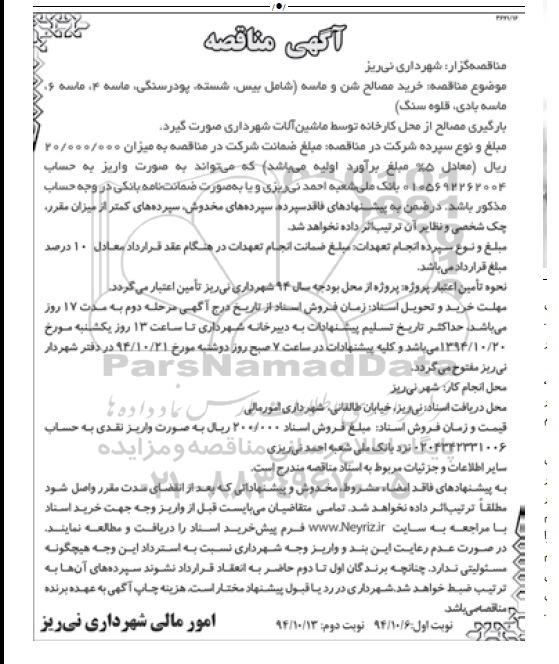 ۳۶۲۱/۱۶
آگهی مناقصه
مناقصه‌گزار: شهرداری نی‌ریز
موضوع مناقصه: خرید مصالح شن و ماسه (شامل بیس، شسته، پودرسنگی، ماسه ۴، ماسه ۶،
ماسه بادی، قلوه سنگ)
بارگیری مصالح از محل کارخانه توسط ماشین‌آلات شهرداری صورت گیرد.
مبلغ و نوع سپرده شرکت در مناقصه: مبلغ ضمانت شرکت در مناقصه به میزان ۲۰/۰۰۰/۰۰۰
ریال (معادل ۵% مبلغ برآورد اولیه می‌باشد) که می‌تواند به صورت واریز به حساب
۰۱۰۵۶۹۲۲۶۲۰۰۴ بانک ملی شعبه احمد نی‌ریزی و یا به‌صورت ضمانت‌نامه بانکی در وجه حساب
مذکور باشد. در ضمن به پیشنهادهای فاقد سپرده، سپرده‌های مخدوش، سپرده‌های کمتر از میزان مقرر،
چک شخصی و نظایر آن ترتیب‌اثر داده نخواهد شد.
مبلغ و نوع سپرده انجام تعهدات: مبلغ ضمانت انجام تعهدات در هنگام عقد قرارداد معادل ۱۰ درصد
مبلغ قرارداد می‌باشد.
نحوه تأمین اعتبار پروژه: پروژه از محل بودجه سال ۹۴ شهرداری نی‌ریز تأمین اعتبار می‌گردد.
مهلت خرید و تحویل اسناد: زمان فروش اسناد از تاریخ درج آگهی مرحله دوم به مدت ۱۷ روز
می‌باشد. حداکثر تاریخ تسلیم پیشنهادات به دبیرخانه شهرداری تا ساعت ۱۳ روز یکشنبه مورخ
۱۳۹۴/۱۰/۲۰ می‌باشد و کلیه پیشنهادات در ساعت ۷ صبح روز دوشنبه مورخ ۹۴/۱۰/۲۱ در دفتر شهردار
نی‌ریز مفتوح می‌گردد.
ParsNamadData
محل انجام کار: شهر نی‌ریز
محل دریافت اسناد: نی‌ریز، خیابان طالقانی، شهرداری امورمالی
قیمت و زمان فروش اسناد: مبلغ فروش اسناد ۲۰۰/۰۰۰ ریال به صورت واریز نقدی به حساب
۰۲۰۴۳۴۲۳۳۱۰۰۶ نزد بانک ملی شعبه احمد نی‌ریزی
سایر اطلاعات و جزئیات مربوط به اسناد مناقصه مندرج است.
به پیشنهادهای فاقد امضاء، مشروط، مخدوش و پیشنهاداتی که بعد از انقضای مدت مقرر واصل شود
مطلقاً ترتیب‌اثر داده نخواهد شد. تمامی متقاضیان می‌بایست قبل از واریز وجه جهت خرید اسناد
با مراجعه به سایت www.Neyriz.ir فرم پیش‌خرید اسناد را دریافت و مطالعه نمایند.
در صورت عدم رعایت این بند و واریز وجه شهرداری نسبت به استرداد این وجه هیچگونه
مسئولیتی ندارد. چنانچه برندگان اول تا دوم حاضر به انعقاد قرارداد نشوند سپرده‌های آن‌ها به
ترتیب ضبط خواهد شد. شهرداری در رد یا قبول پیشنهاد مختار است. هزینه چاپ آگهی به عهده برنده
مناقصه می‌باشد.
نوبت اول: ۹۴/۱۰/۶ نوبت دوم: ۹۴/۱۰/۱۳
امور مالی شهرداری نی‌ریز